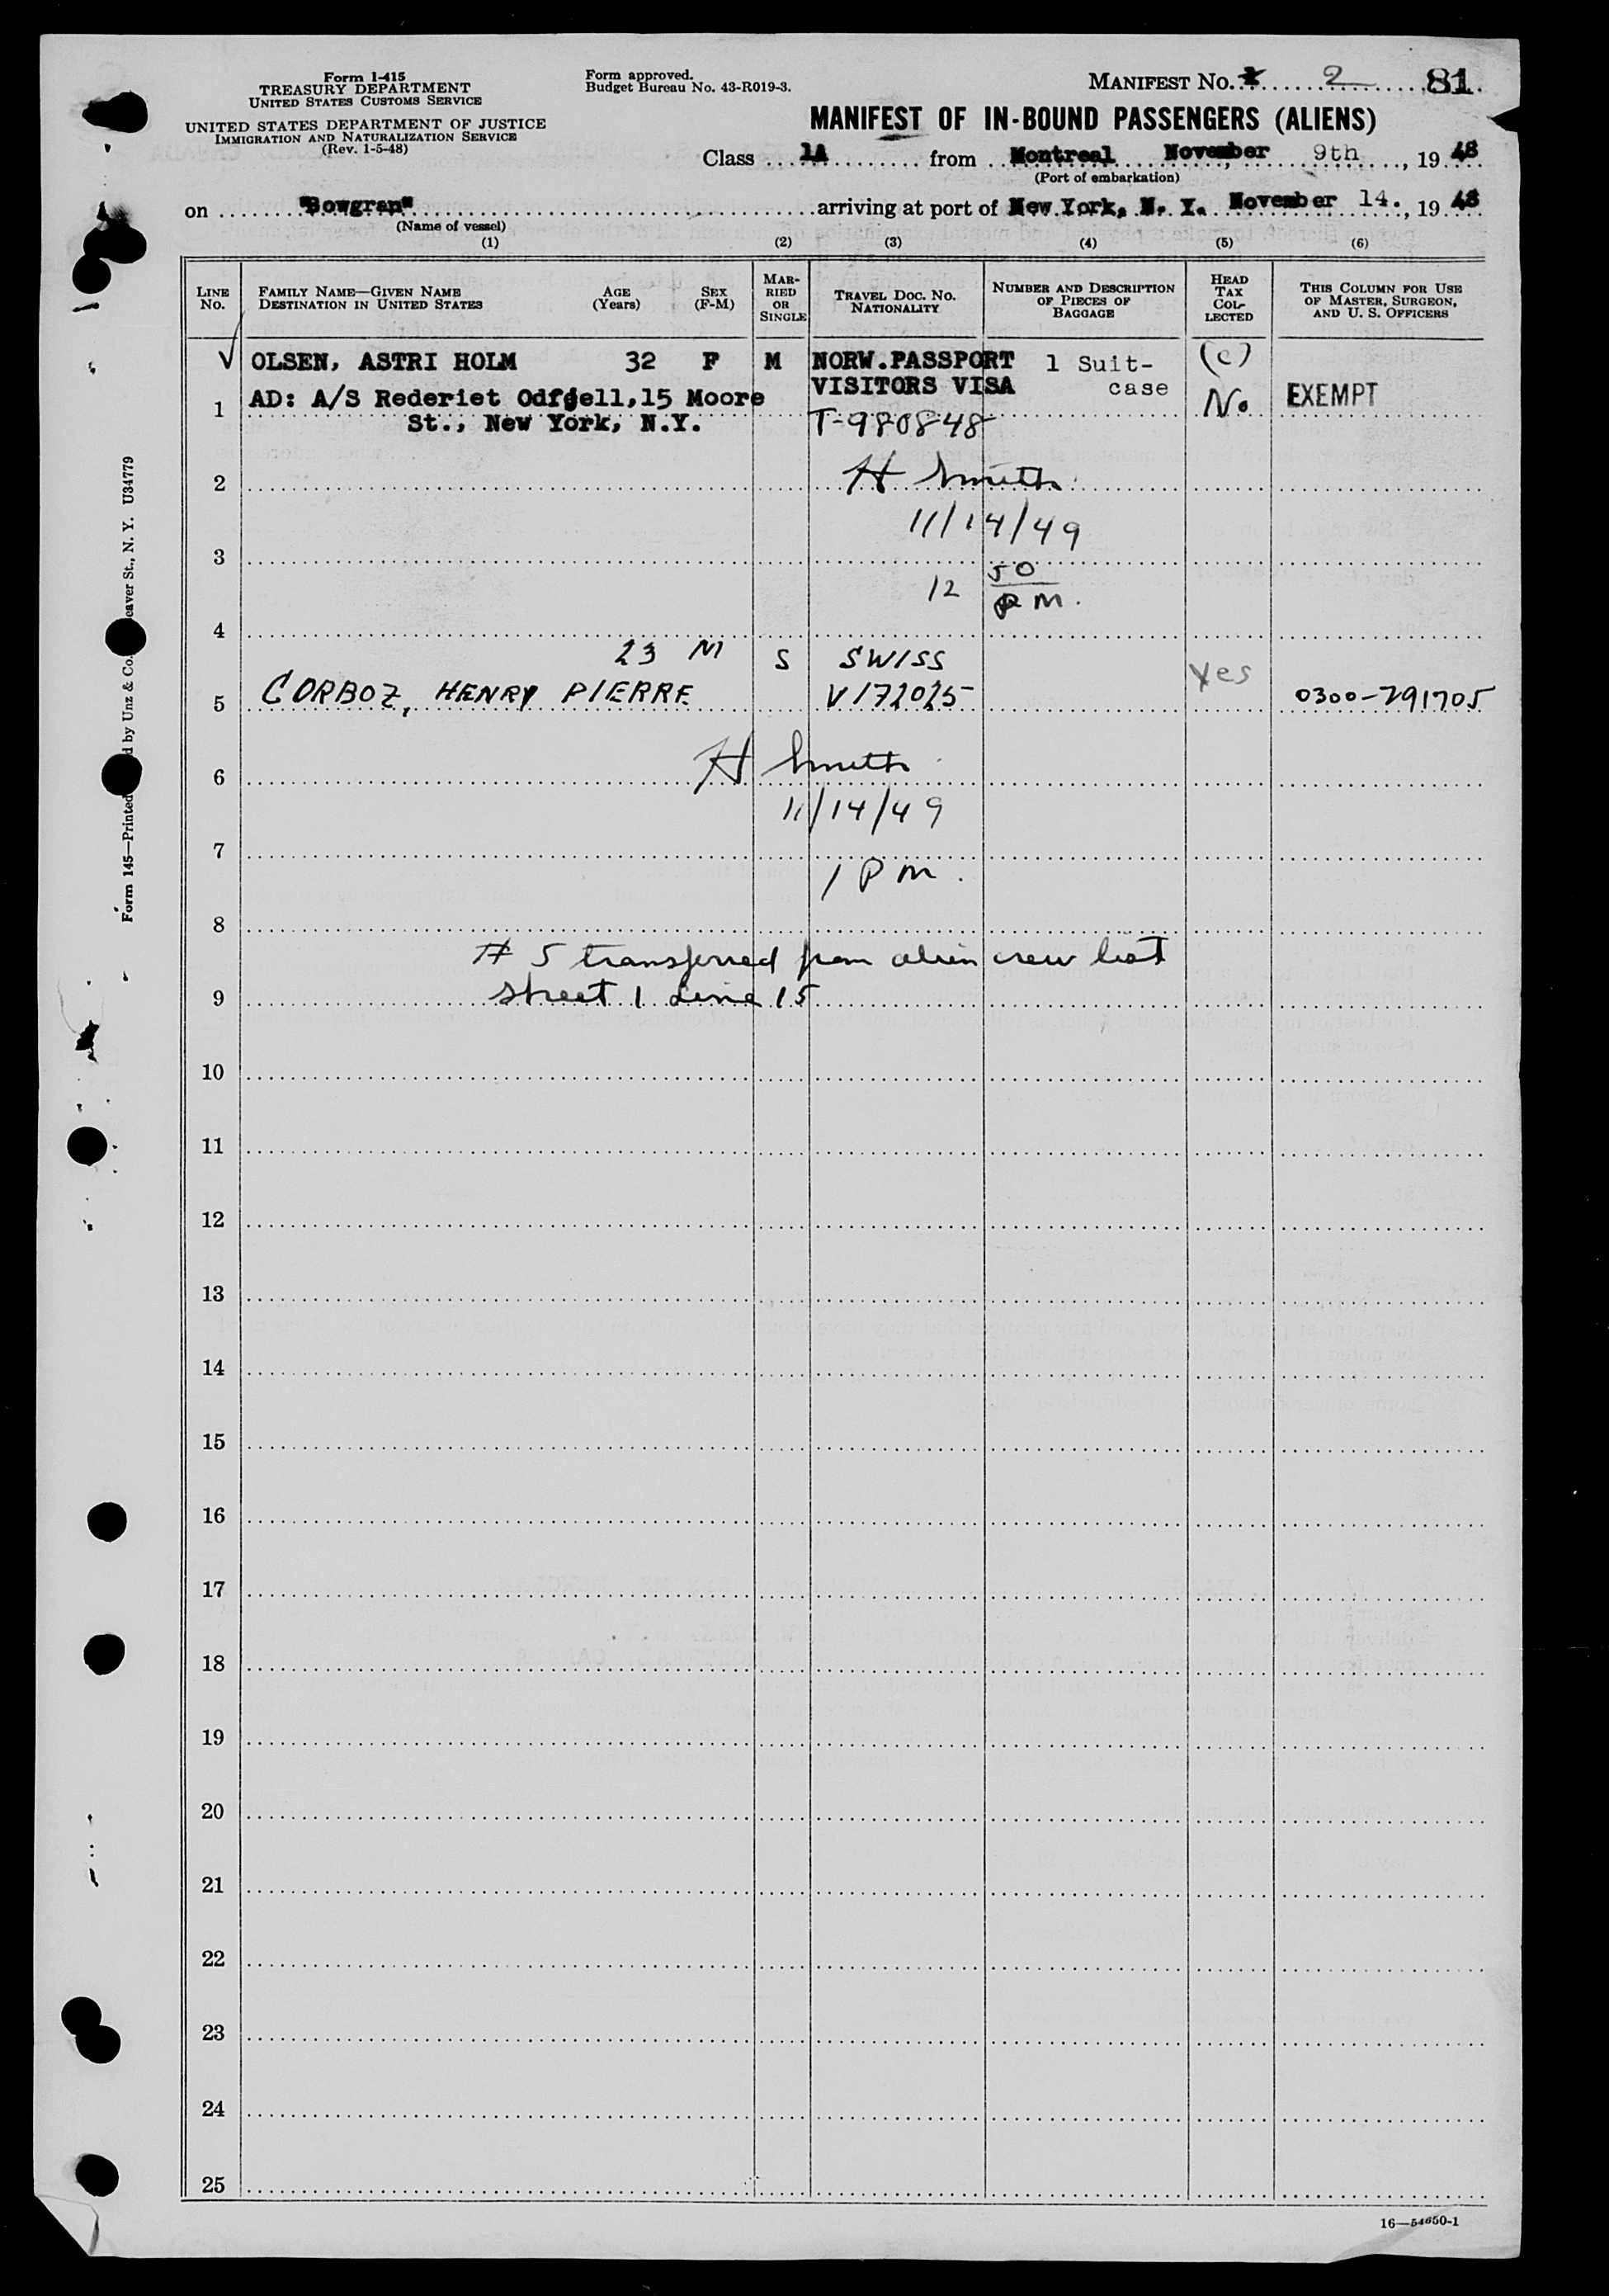 Form I-415
TREASURY DEPARTMENT
UNITED STATES CUSTOMS SERVICE
UNITED STATES DEPARTMENT OF JUSTICE
IMMIGRATION AND NATURALIZATION SERVICE
(Rev. 1-5-48)
Form approved.
Budget Bureau No. 43-R019-3.
MANIFEST No. 2 81
MANIFEST OF IN-BOUND PASSENGERS (ALIENS)
Class 1A from Montreal November 9th, 19 48
(Port of embarkation)
on "Bowgran" arriving at port of New York, N. Y. November 14., 19 48
(Name of vessel)
(1) (2) (3) (4) (5) (6)
LINE No. FAMILY NAME—GIVEN NAME DESTINATION IN UNITED STATES AGE (Years) SEX (F-M) MARRIED OR SINGLE TRAVEL DOC. No. NATIONALITY NUMBER AND DESCRIPTION OF PIECES OF BAGGAGE HEAD TAX COLLECTED THIS COLUMN FOR USE OF MASTER, SURGEON, AND U. S. OFFICERS
√ OLSEN, ASTRI HOLM 32 F M NORW.PASSPORT 1 Suit- (c)
1 AD: A/S Rederiet Odfjell,15 Moore VISITORS VISA case No EXEMPT
St., New York, N.Y. T-980848
2 H Smith
11/14/49
3
12 50 PM.
4
23 M S SWISS yes
5 CORBOZ, HENRY PIERRE V172025 0300-791705
6 H Smith
11/14/49
7
1 PM.
8
# 5 transferred from alien crew list
9 sheet 1 line 15
10
11
12
13
14
15
16
17
18
19
20
21
22
23
24
25
16—54650-1
Form 145—Printed by Unz & Co. eaver St., N. Y. U34779